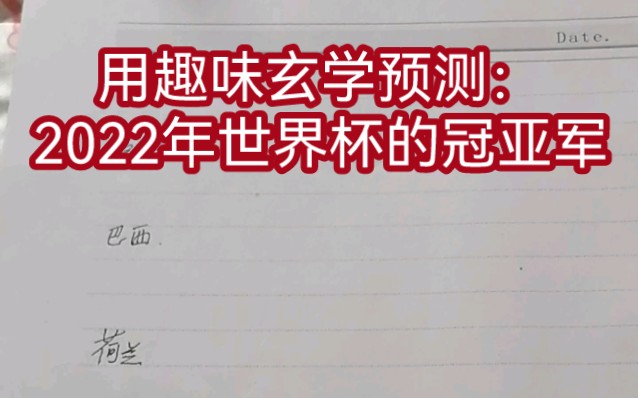 Date.
用趣味玄学预测：
2022年世界杯的冠亚军
巴西.
荷兰